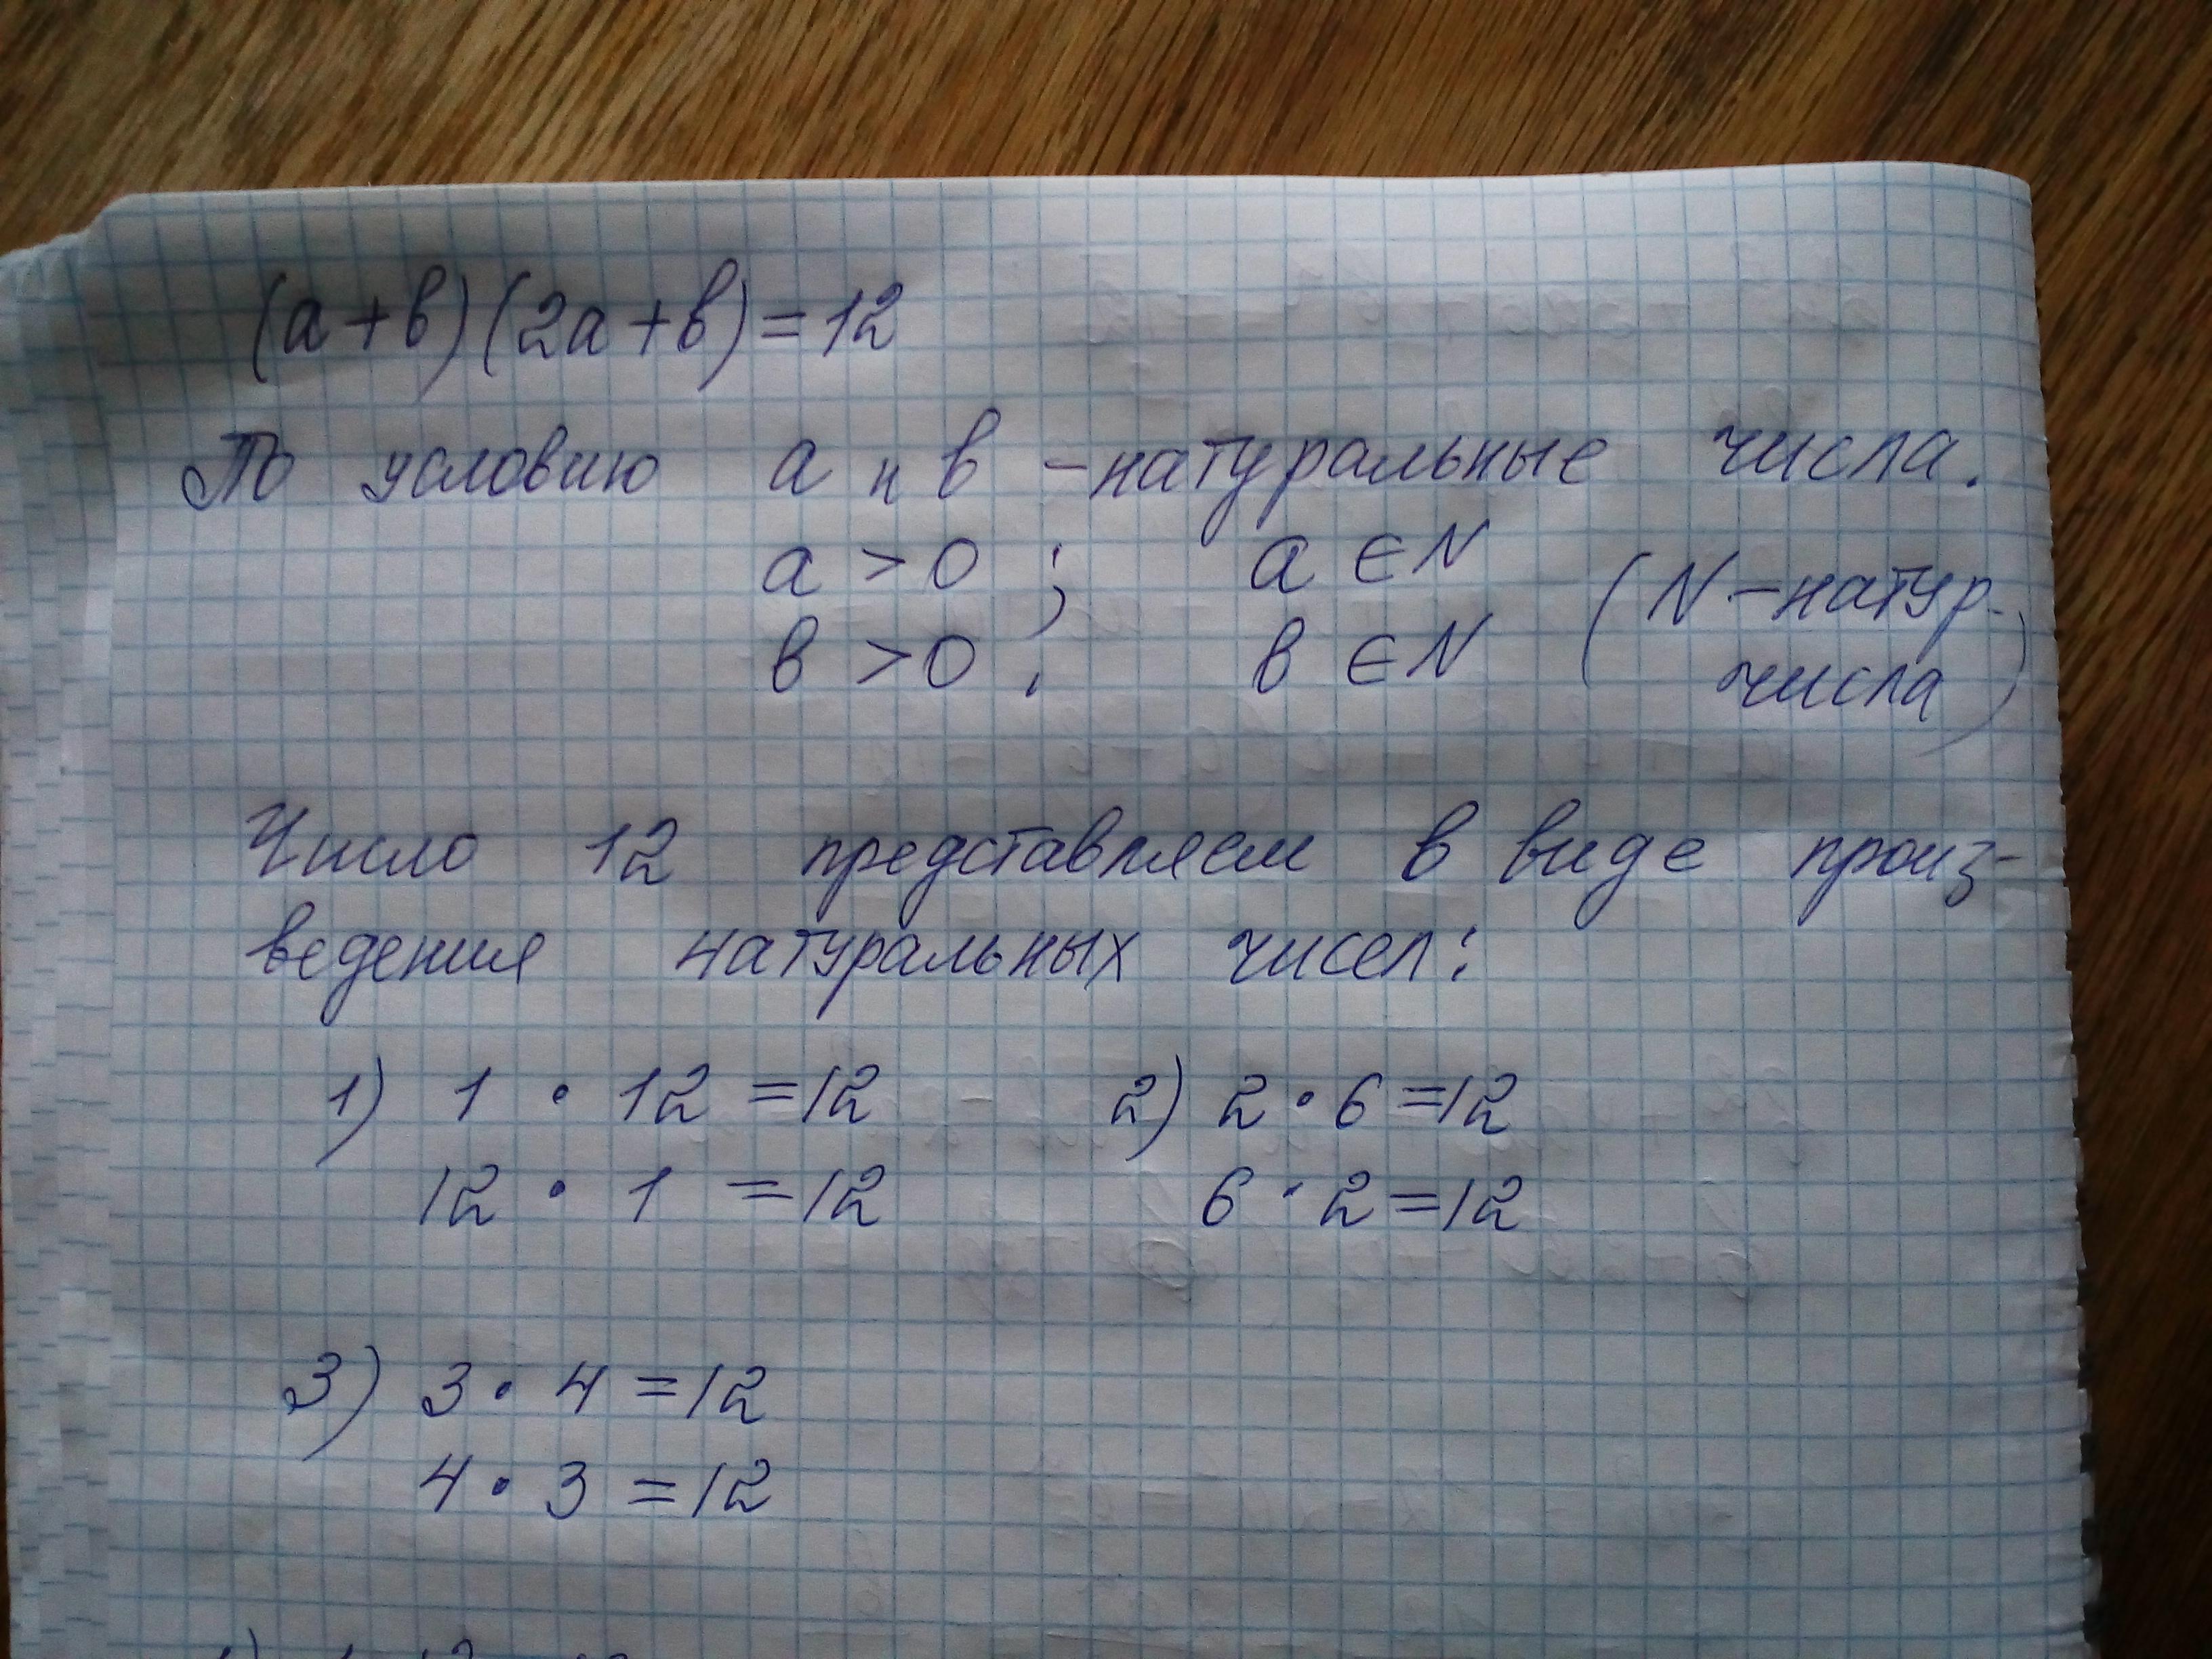 (а+в)(2а+в)=12
По условию а и в - натуральные числа.
а > 0 ; а ∈ N
в > 0 ; в ∈ N (N - натур. числа)
Число 12 представляем в виде произ-
ведения натуральных чисел:
1) 1 · 12 = 12 2) 2 · 6 = 12
12 · 1 = 12 6 · 2 = 12
3) 3 · 4 = 12
4 · 3 = 12